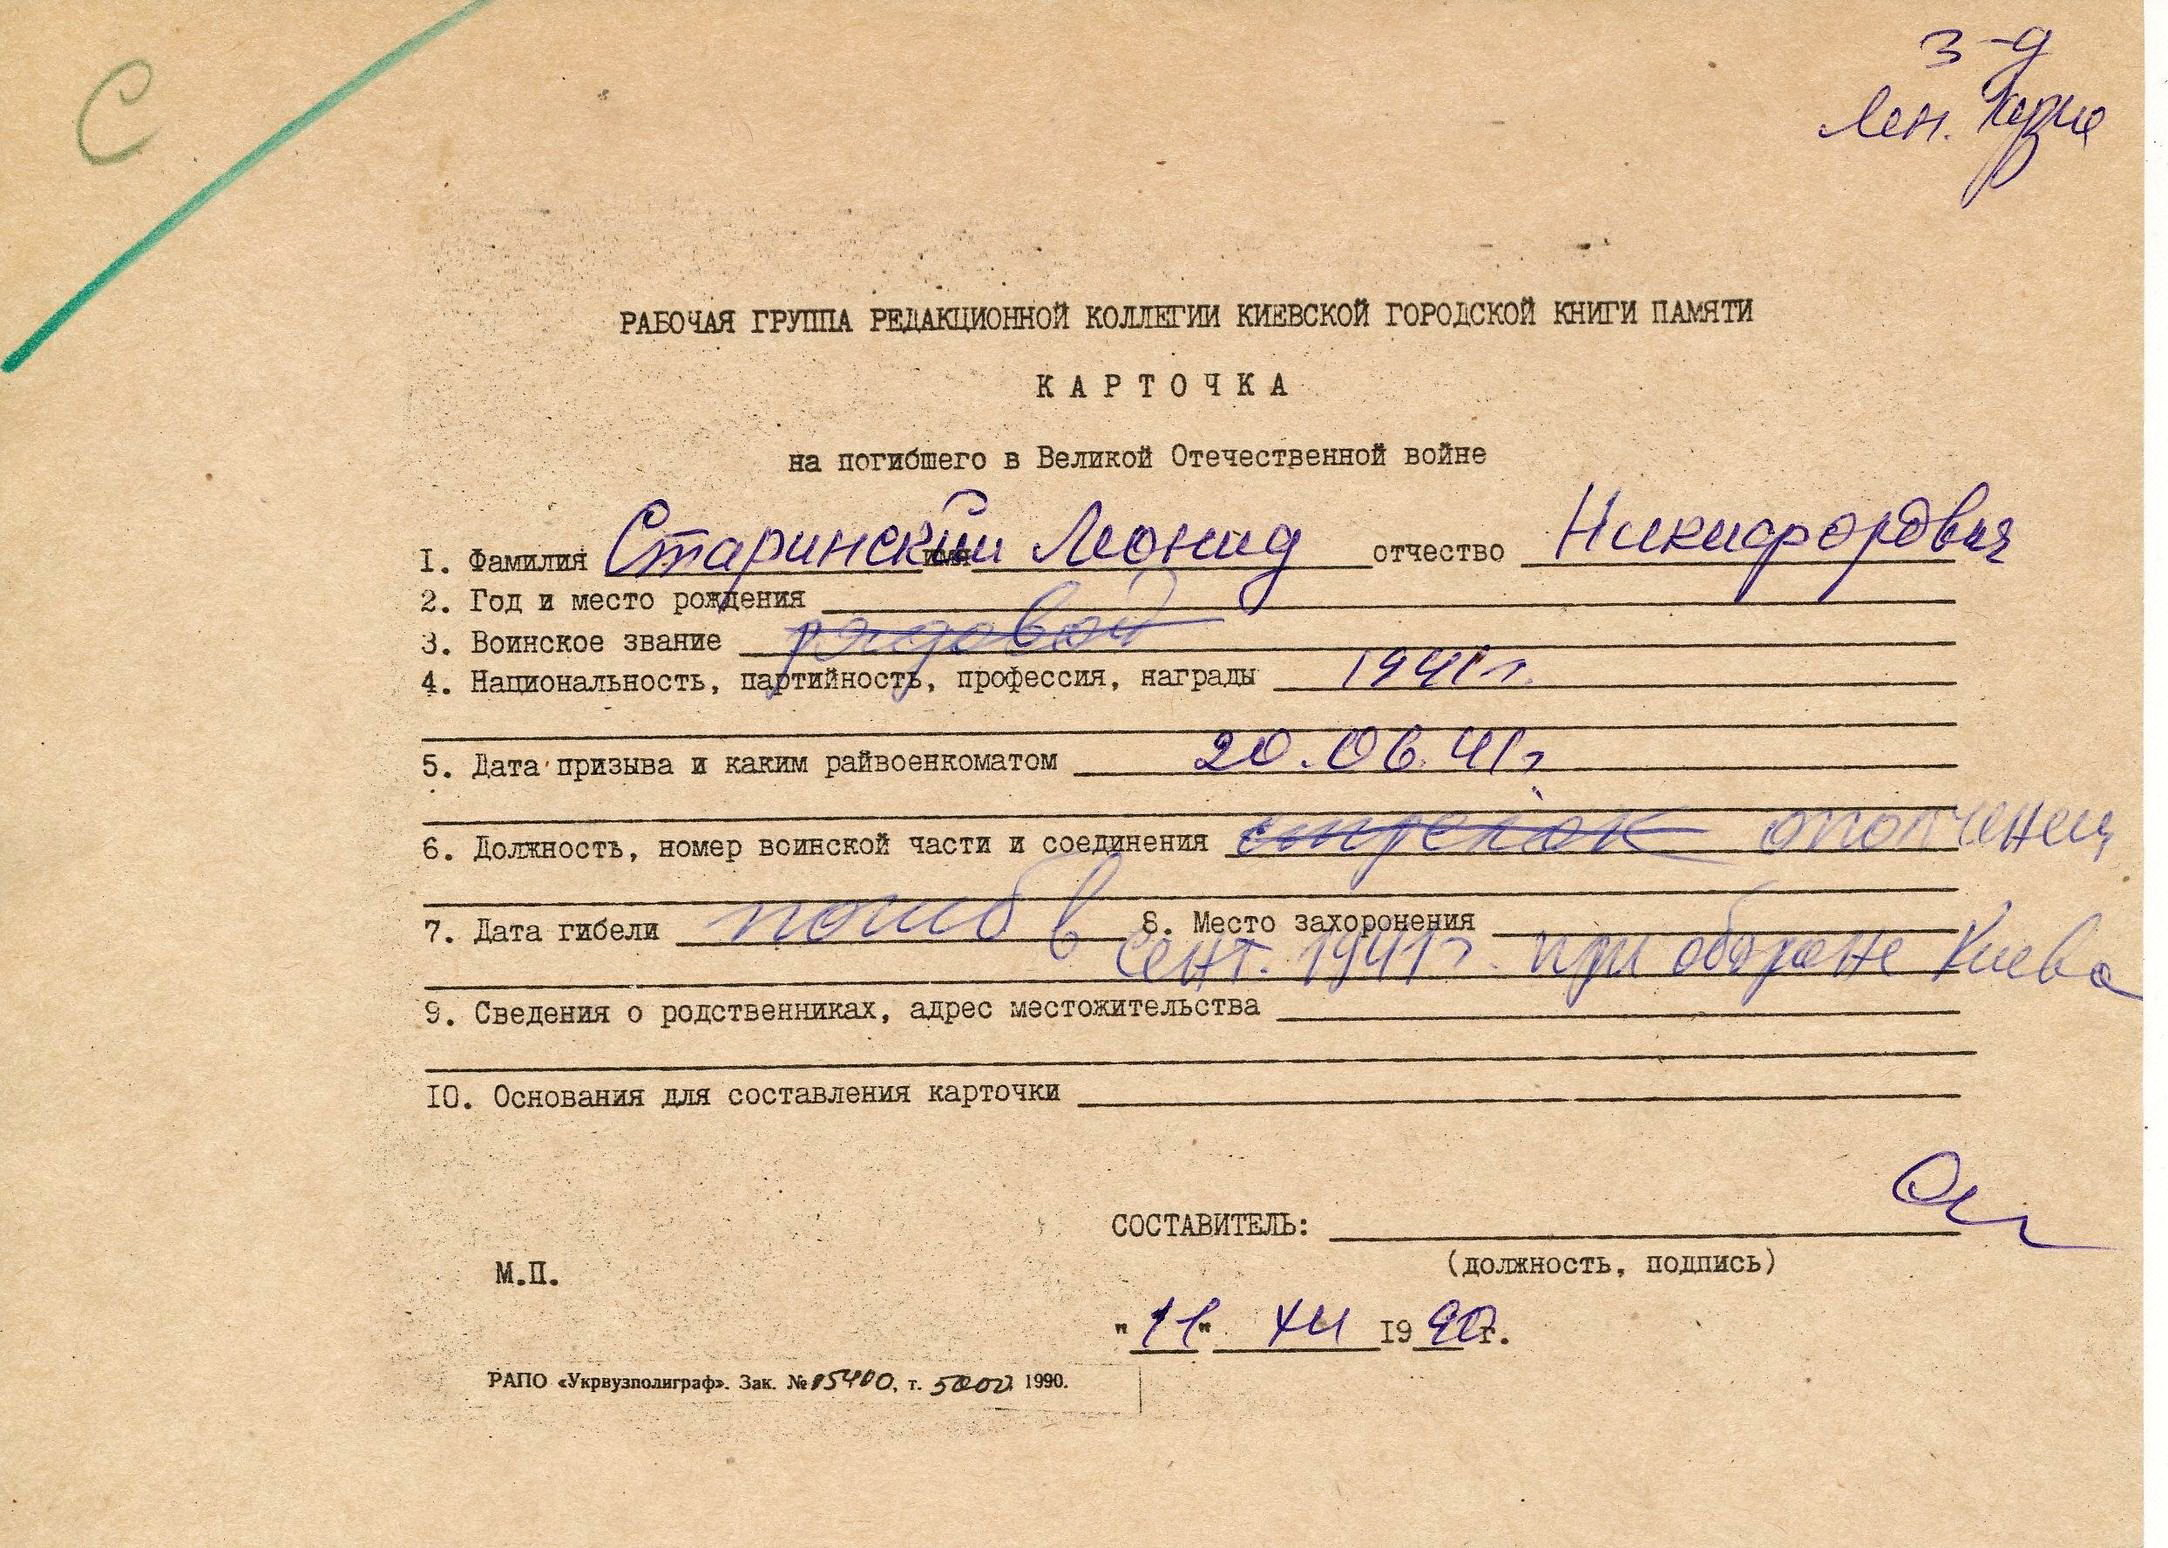 С
з-д
Лен. Кузня
РАБОЧАЯ ГРУППА РЕДАКЦИОННОЙ КОЛЛЕГИИ КИЕВСКОЙ ГОРОДСКОЙ КНИГИ ПАМЯТИ
КАРТОЧКА
на погибшего в Великой Отечественной войне
I. Фамилия Старинский имя Леонид отчество Никифорович
2. Год и место рождения
3. Воинское звание рядовой
4. Национальность, партийность, профессия, награды 1941г.
5. Дата призыва и каким райвоенкоматом 20.06.41г
6. Должность, номер воинской части и соединения стрелок ополченец
7. Дата гибели погиб в 8. Место захоронения
сент. 1941г. при обороне Киева
9. Сведения о родственниках, адрес местожительства
10. Основания для составления карточки
СОСТАВИТЕЛЬ:
(должность, подпись)
М.П.
"11" XII 1990г.
РАПО «Укрвузполиграф». Зак. № 05400, т. 5000 1990.